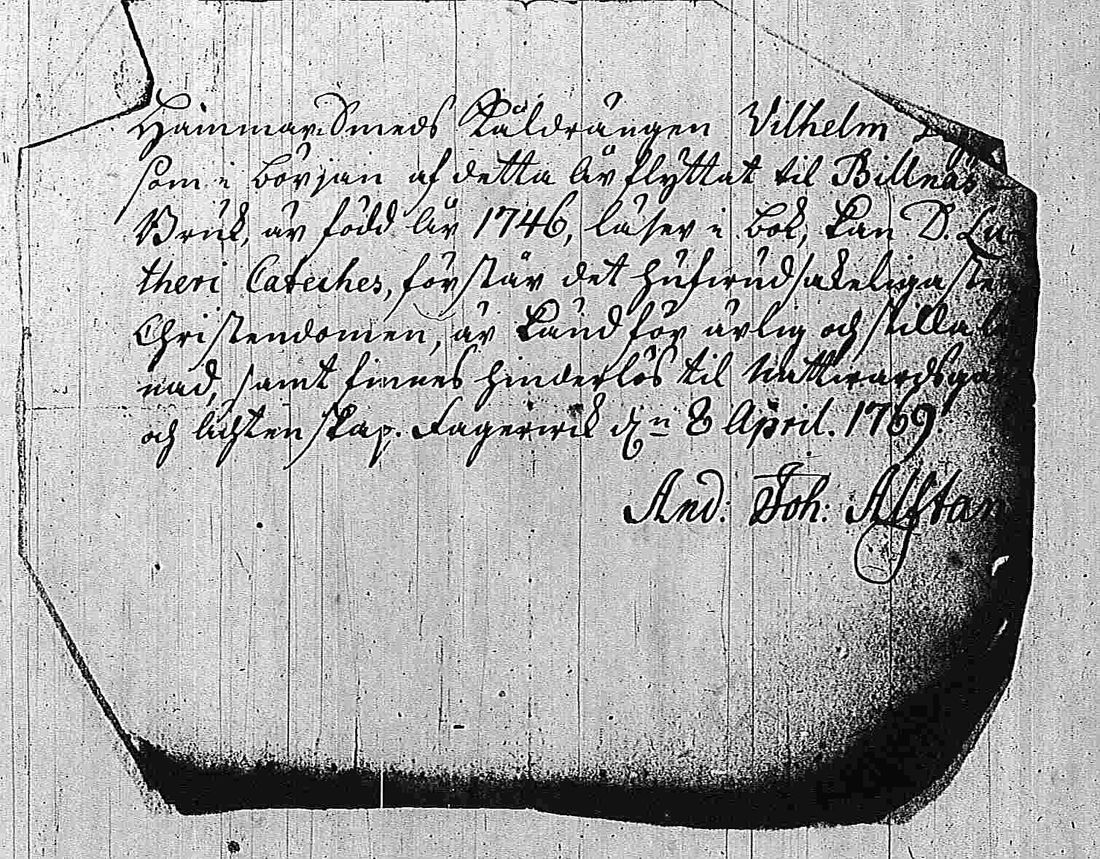 Hammar Smeds Kåldrängen Vilhelm
som i början af detta år flyttat til Billnäs
Bruk, är född år 1746, läser i bok, kan D. Lu-
theri Cateches, förstår det hufwudsakeligaste
Christendomen, är känd för ärlig och stilla
nad, samt finnes hinderlös til Nattwards
och ächtenskap. Fagerwik den 8 April. 1769.
And: Joh: Alftan